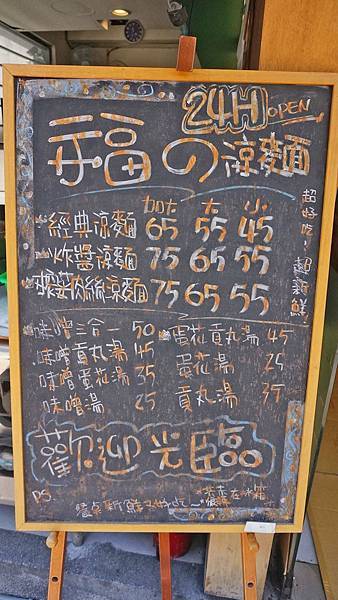 24H OPEN
福の涼麵
超好吃!超新鮮
加大 大 小
經典涼麵 65 55 45
炸醬涼麵 75 65 55
榨菜肉絲涼麵 75 65 55
味噌三合一 50
味噌貢丸湯 45
味噌蛋花湯 35
味噌湯 25
蛋花貢丸湯 45
蛋花湯 25
貢丸湯 35
歡迎光臨
PS.
餐桌新鮮
在冰箱